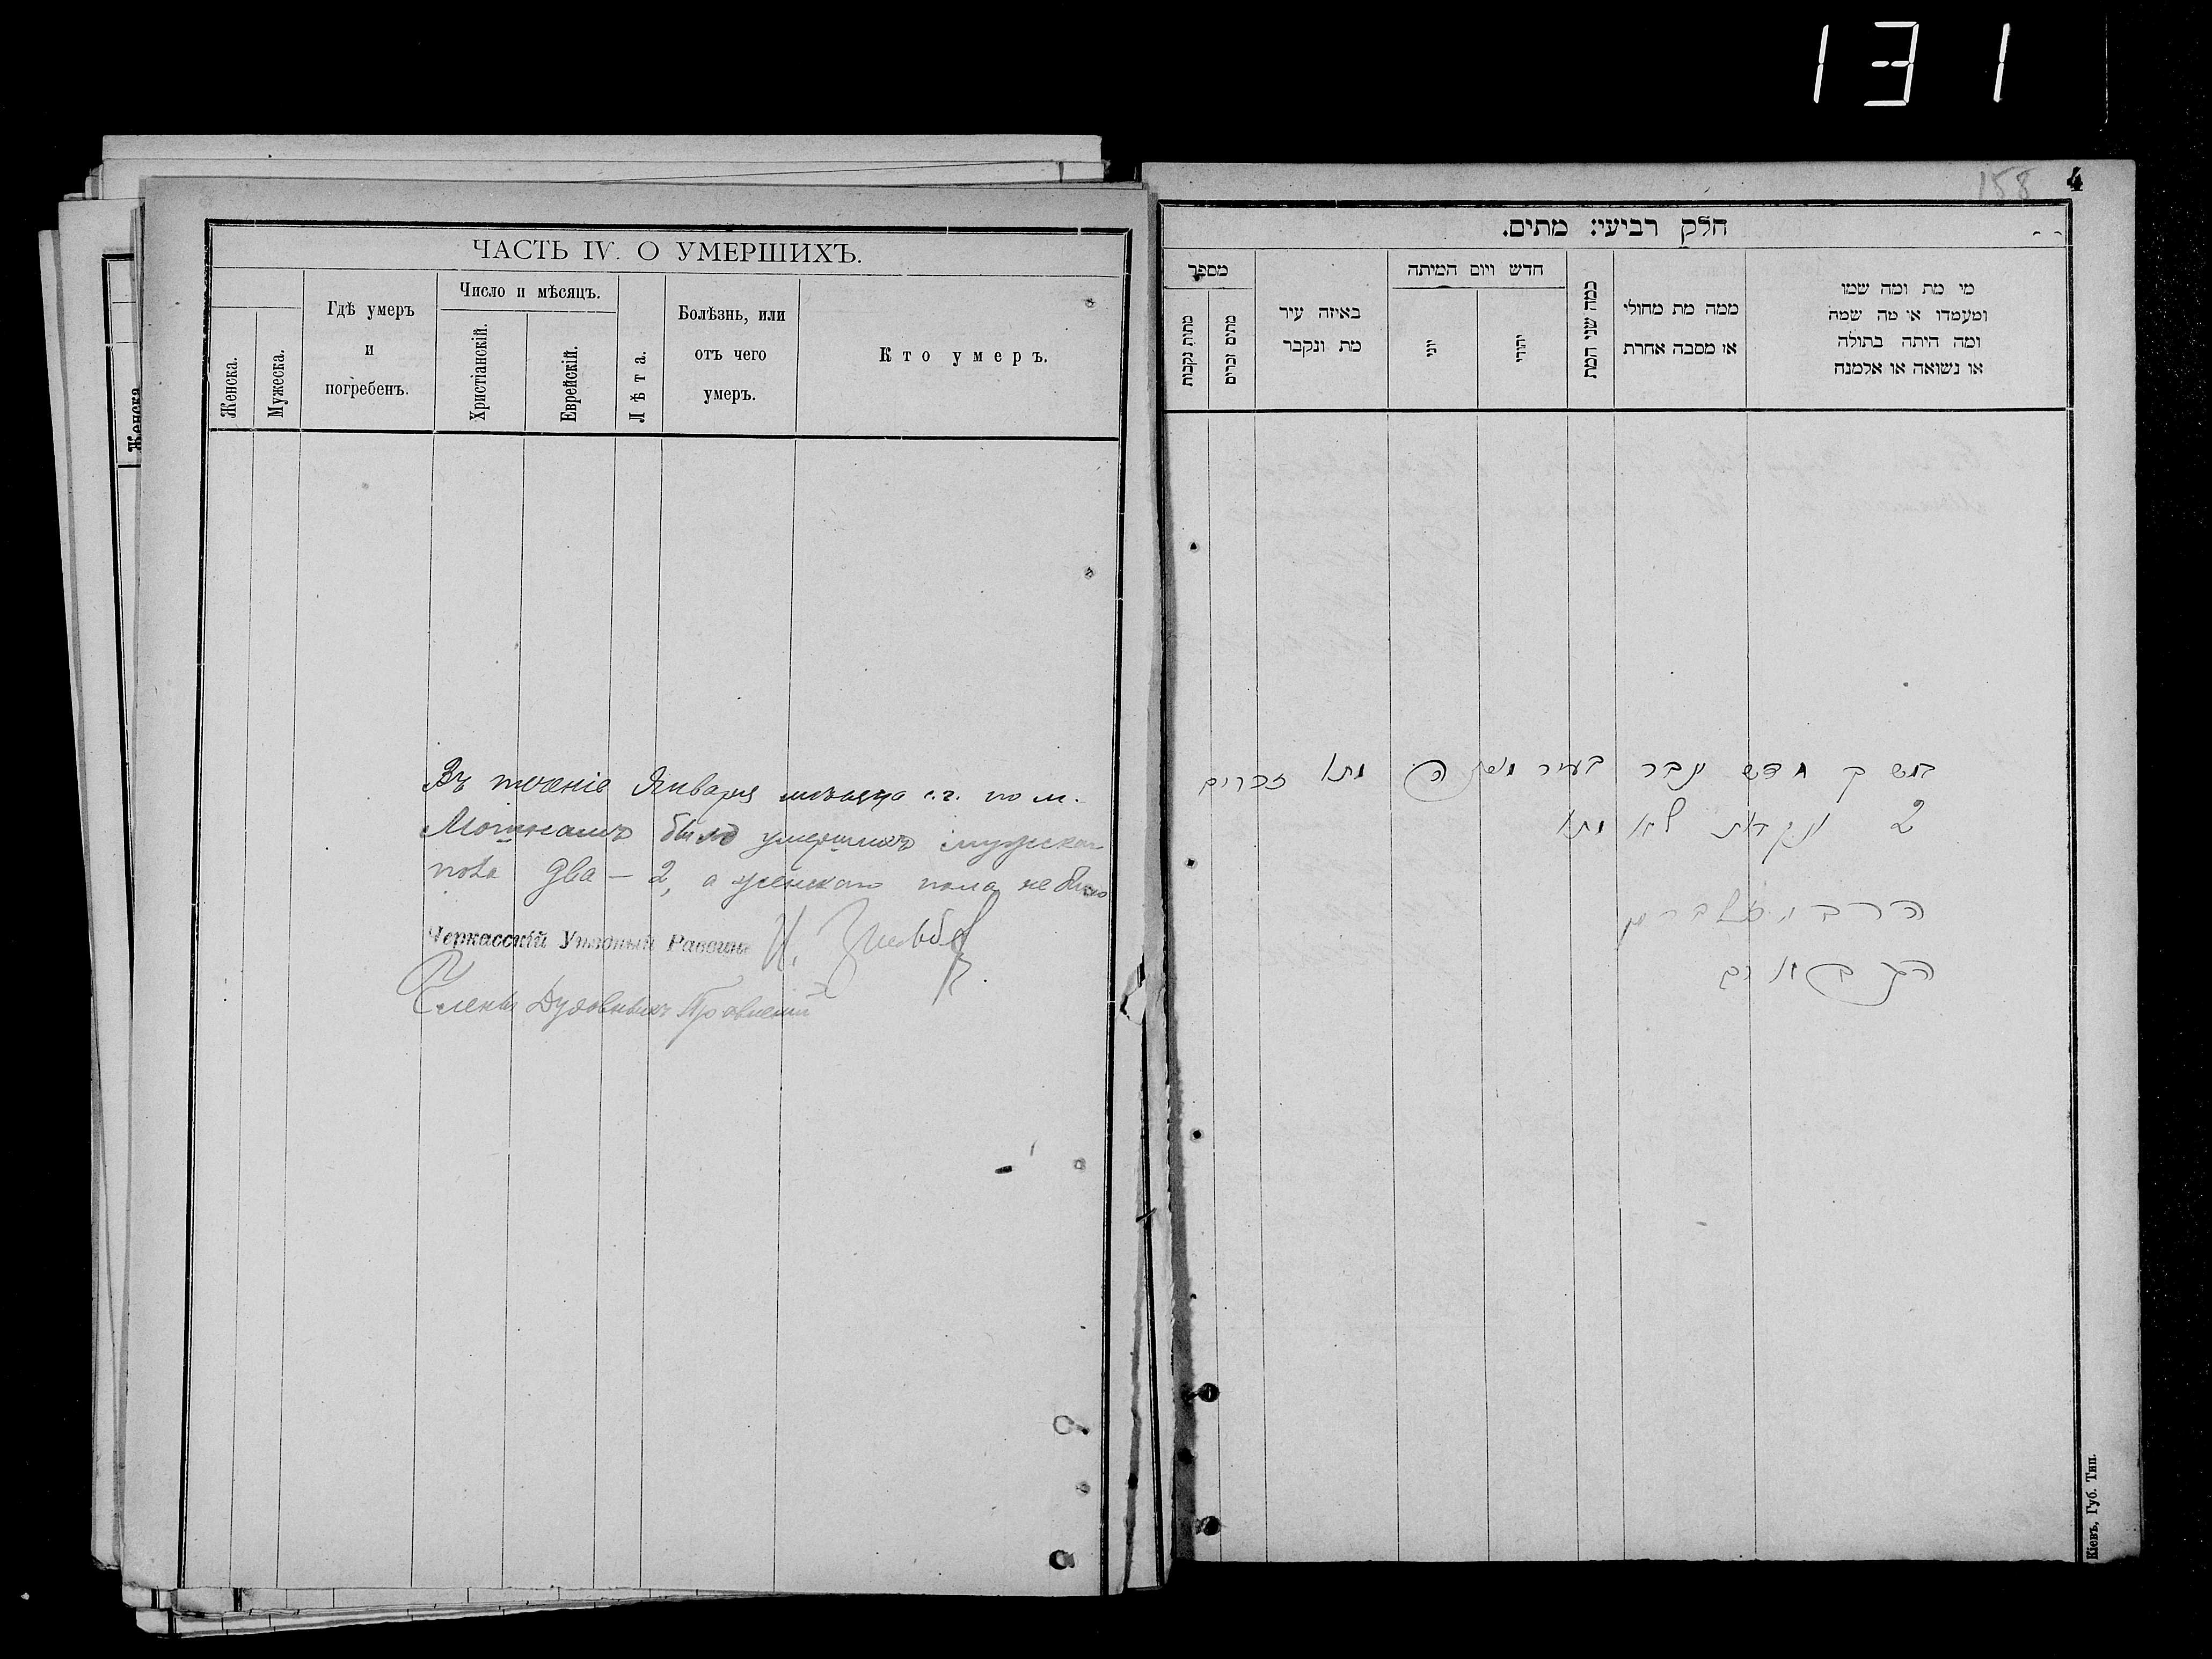 131
ЧАСТЬ IV. О УМЕРШИХЪ.
Женска.
Мужеска.
Гдѣ умеръ
и
погребенъ.
Число и мѣсяцъ.
Христіанскій.
Еврейскій.
Лѣта.
Болѣзнь, или
отъ чего
умеръ.
Кто умеръ.
Въ теченіе Января мѣсяца с. г. по м.
Мошнамъ было умершихъ мужскаго
пола два — 2, а женскаго пола не было
Черкасскій Уѣздный Раввинъ
Члены Духовныхъ Правленій
Женска
158
4
חלק רביעי: מתים.
מספר
מתות נקבות
מתים זכרים
באיזה עיר
מת ונקבר
חדש ויום המיתה
יוני
יהודי
כמה שני המת
ממה מת מחולי
או מסבה אחרת
מי מת ומה שמו
ומעמדו או מה שמה
ומה היתה בתולה
או נשואה או אלמנה
חדש בעיר מתו זכרים
2 לא מתו
Кіевъ, Губ. Тип.